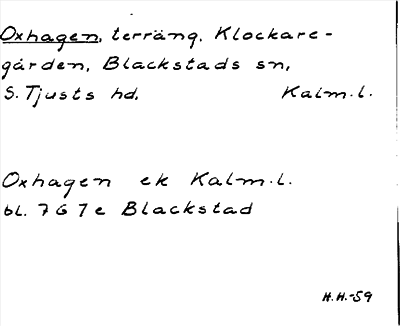 Oxhagen, terräng, Klockare-
gården, Blackstads sn,
S. Tjusts hd, Kalm.l.
Oxhagen ek Kalm.l.
bl. 7G7e Blackstad
H.H.-59